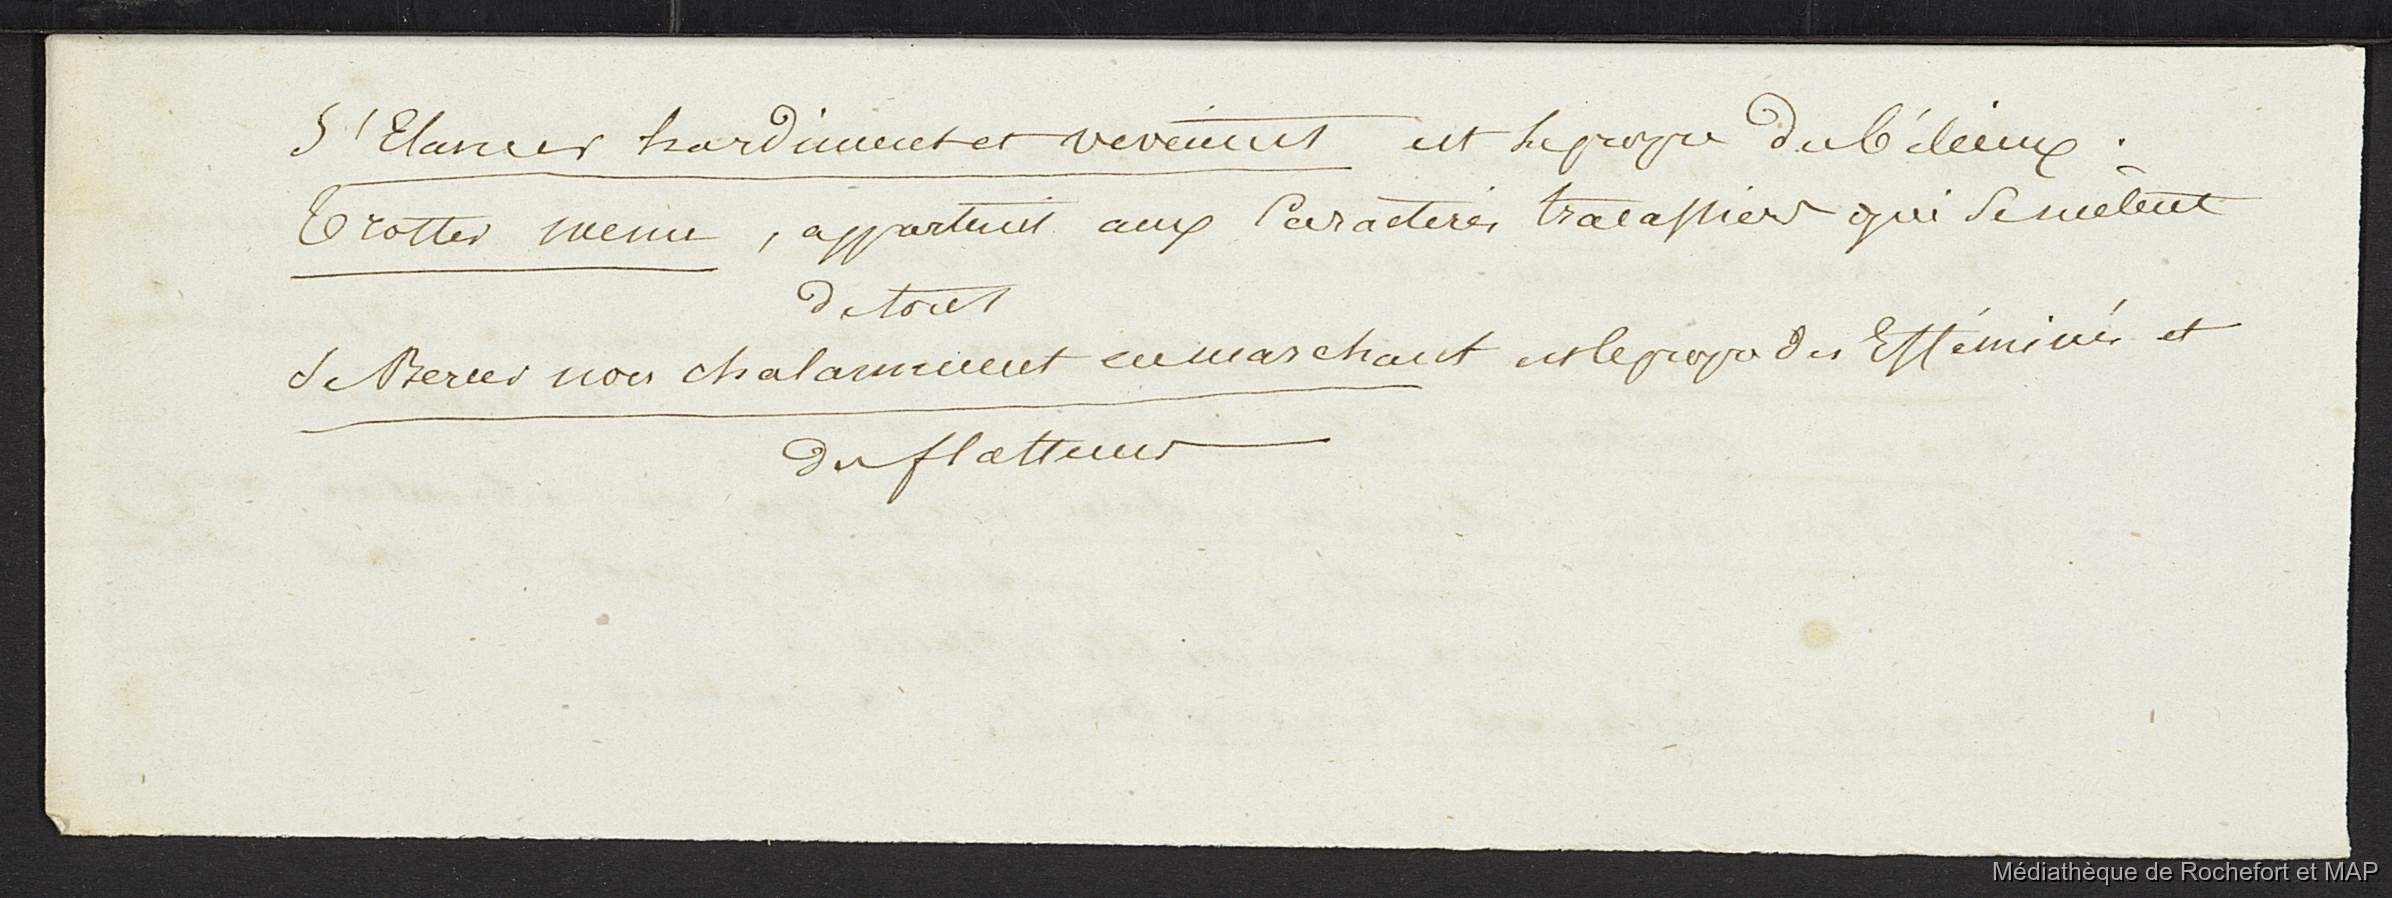 S'Elancer hardiment et vivement est le propre du bilieux.
Trotter menu, appartient aux Caracteres tracassiers qui se mêlent
de tout
se Bercer non chalamment en marchant est le propre des Efféminés et
des flatteurs
Médiathèque de Rochefort et MAP